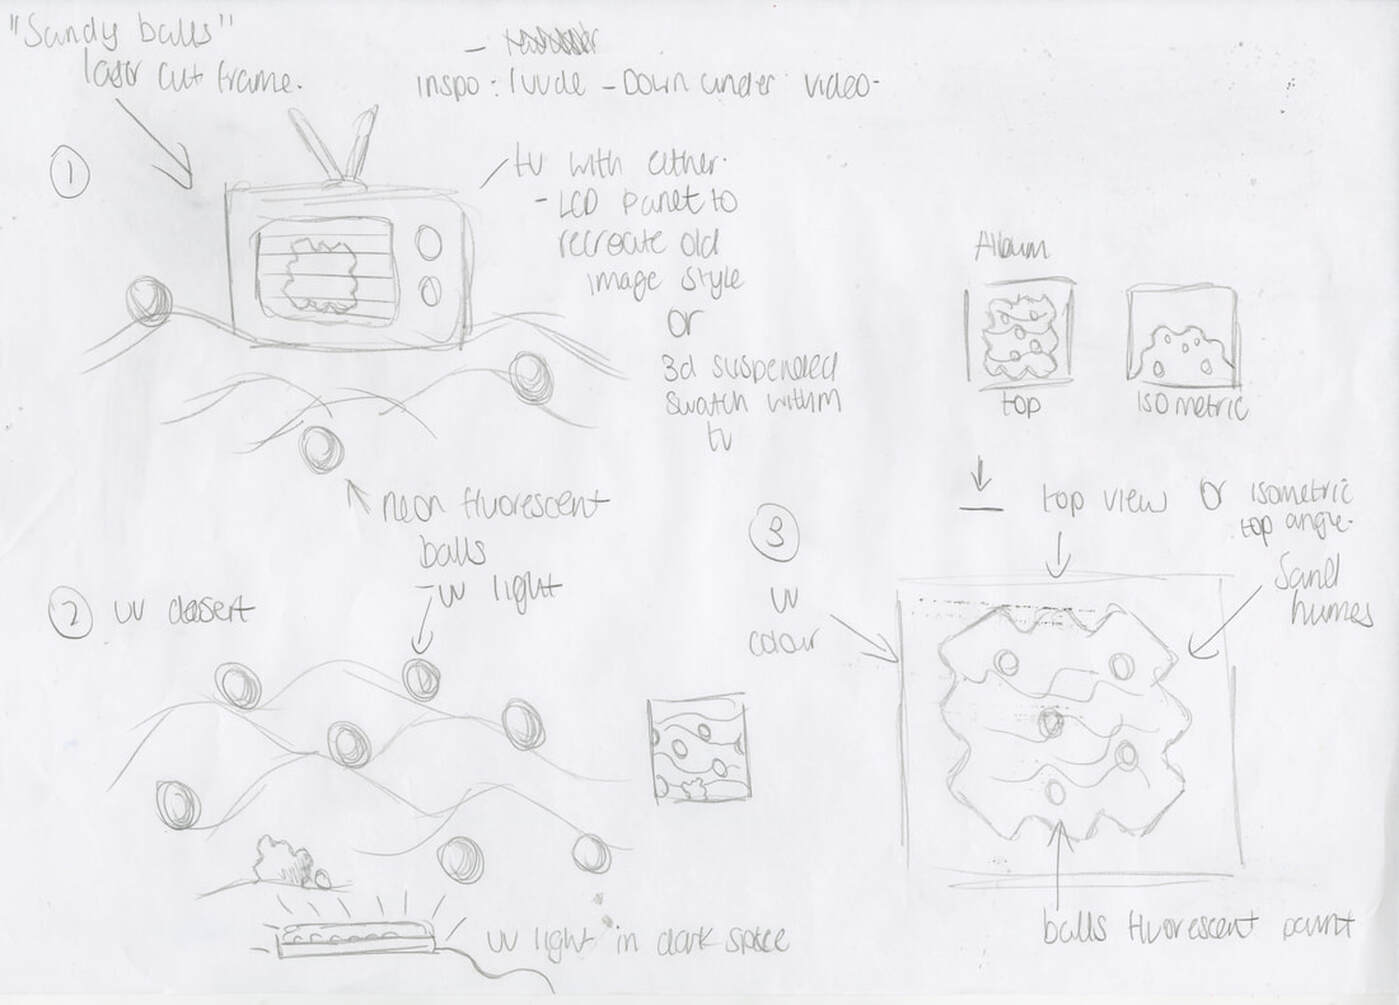 "Sandy balls"
laser cut frame.
inspo: luude - Down under video-
1
tv with either.
- LCD panel to
recreate old
image style
or
3d suspended
swatch within
tv
neon fluorescent
balls
- uv light
Album
top
isometric
2 uv desert
uv light in dark space
3
top view or isometric
top angle.
uv
colour
Sand
balls fluorescent paint